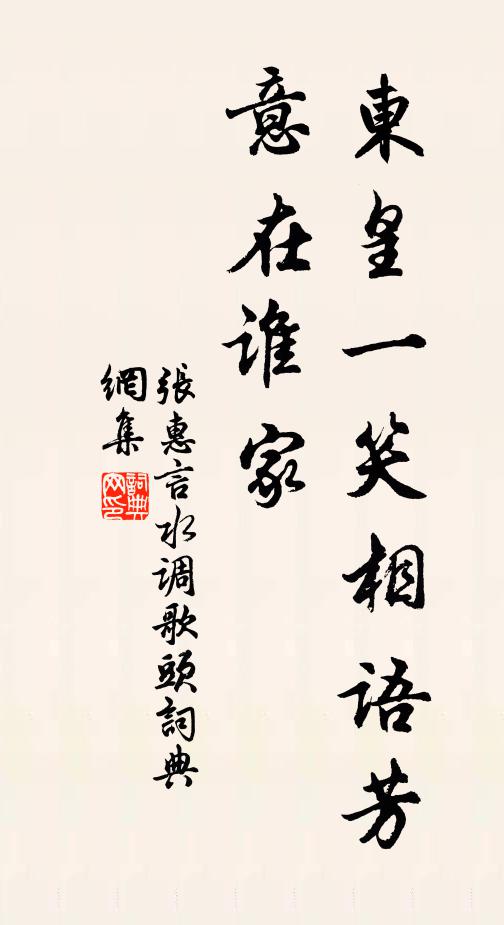 東皇一笑相語芳
意在谁家
張惠言水调歌頭詞典
網集
詞典
网印